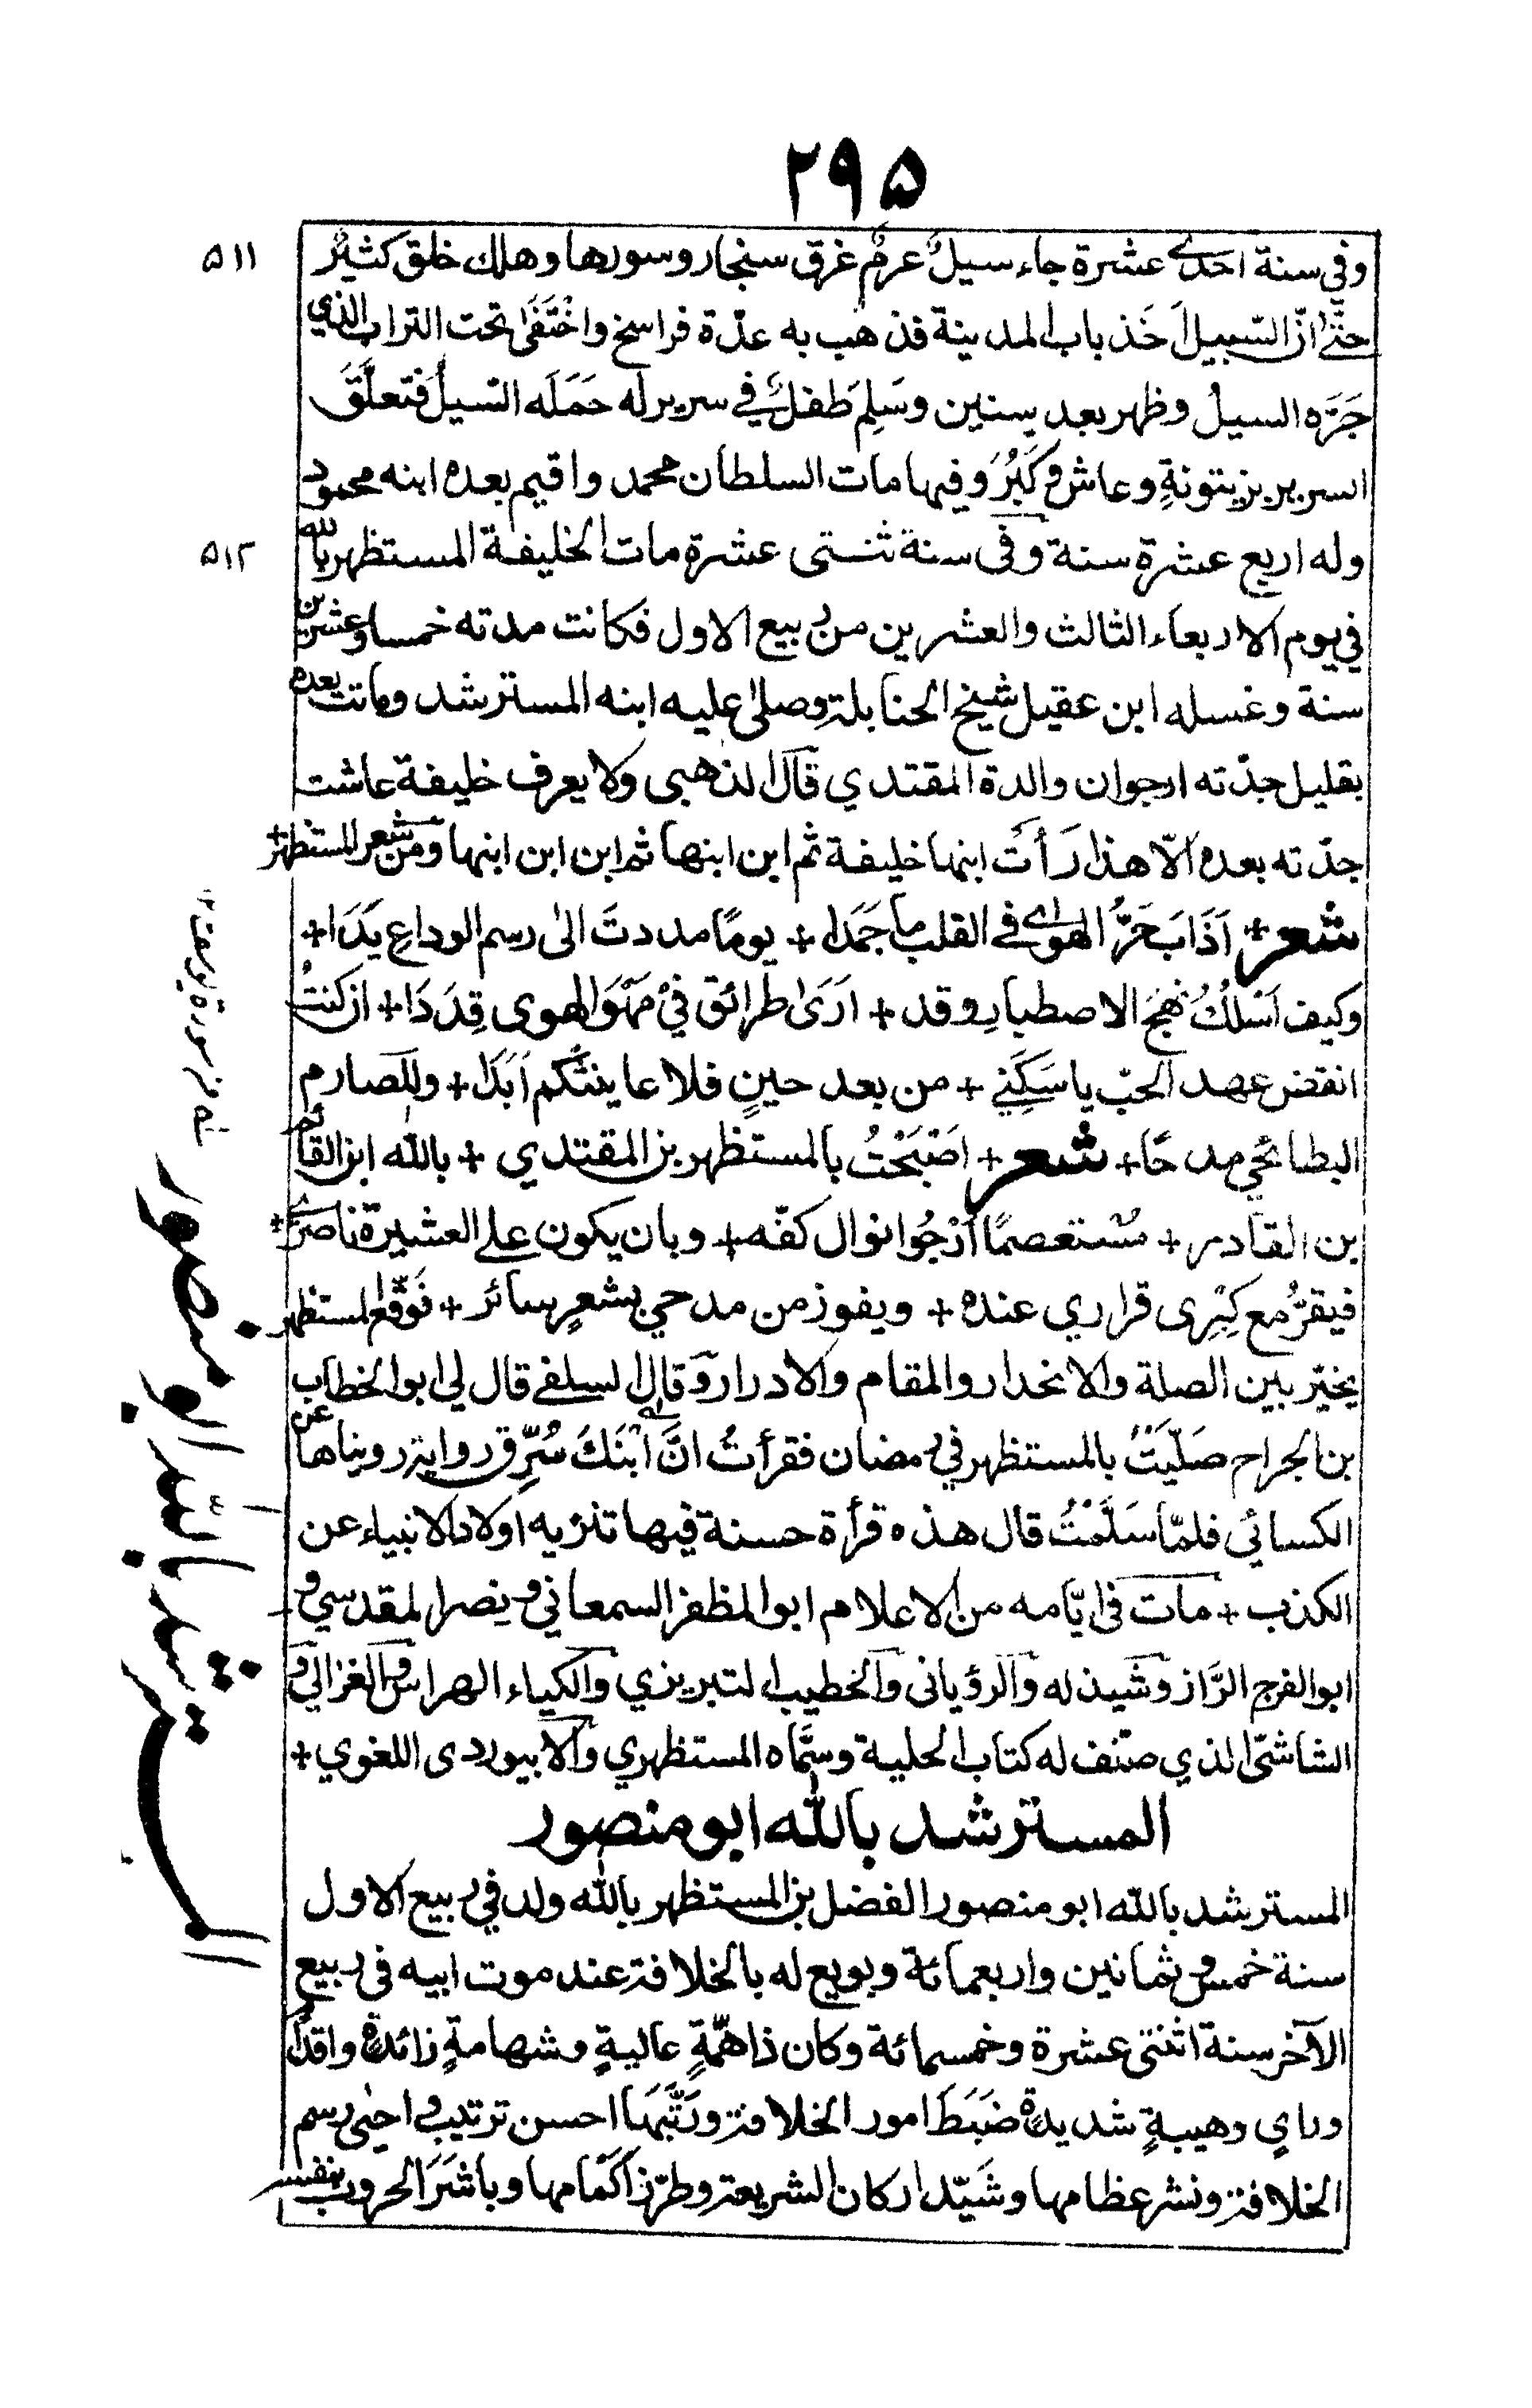 ٢٩۵
وفي سنة احدى عشرة جاء سيلٌ عرمٌ غرق سنجار وسورها وهلك خلق كثيرٌ
۵١١
حتّى انّ السيل اَخَذ باب المدينة فذهب به عدّة فراسخ واخْتَفَىٰ تحت التراب الذي
جَرَّه السيلُ وظهر بعد سنين وسَلِمَ طفلٌ في سرير له حَمَلَه السيلُ فتعلَّقَ
السرير بزيتونةٍ وعاش وكَبُرَ وفيها مات السلطان محمد واقيم بعده ابنه محمود
وله اربع عشرة سنة وفي سنة ثنتى عشرة مات الخليفة المستظهر بالله
۵١٢
في يوم الاربعاء الثالث والعشرين من ربيع الاول فكانت مدته خمسا وعشرين
سنة وغسله ابن عقيل شيخ الحنابلة وصلىٰ عليه ابنه المسترشد وماتت بعده
بقليل جدّته ارجوان والدة المقتدي قال الذهبى ولا يعرف خليفة عاشت
جدّته بعده الّا هذا رَأَتْ ابنها خليفة ثم ابن ابنها ثم ابن ابن ابنها ومن شعر المستظهر+
شعر+ اَذَابَ حَرُّ الهوٰى في القلب ما جَمَدا + يومًا مددتَ الىٰ رسم الوداعِ يَدَا+
وكيف اَسْلُكُ نَهْجَ الاصطبارِ وقد + اَرَىٰ طرائق في مَهْوَ الهوى قِدَدَا+ ان كنتُ
انقض عهد الحبّ يا سَكَنِي + من بعد حينٍ فلا عاينتُكم اَبَدَا+ وللصارم
البطائحي مدحًا+ شعر+ اَصْبَحْتُ بالمستظهر بن المقتدي + بالله ابن القائم
بن القادر + مُسْتعصمًا اَرْجُوا نوال كفّه + وبان يكون على العشيرة ناصرى+
فيقرُّ مع كِبَرِى قراري عنده + ويفوز من مدحي بشعرٍ سائر + فوَقَّع المستظهر
يخيّر بين الصلة والانحدار والمقام والادرار وقال السلفي قال لي ابو الخطاب
بن الجراح صَلَّيْتُ بالمستظهر في رمضان فقرأتُ انَّ ابْنَكَ سُرِّق رواية رويناها عن
الكسائي فلمّا سَلَّمْتُ قال هذه قرأة حسنة فيها تنزيه اولاد الانبياء عن
الكذب + مات فى ايّامه من الاعلام ابو المظفر السمعاني ونصر المقدسي و
ابو الفرج الرَّاز وشيذله والرؤيانى والخطيب التبريزي والكياء الهراس والغزالي و
الشاشىّ الذي صنّف له كتاب الحلية وسمَّاه المستظهري والابيوردى اللغوي +
المسترشد بالله ابو منصور
المسترشد بالله ابو منصور الفضل بن المستظهر بالله ولد في ربيع الاول
سنة خمس وثمانين واربعمائة وبويع له بالخلافة عند موت ابيه فى ربيع
الآخر سنة اثنتى عشرة وخمسمائة وكان ذا همّةٍ عاليةٍ وشهامةٍ زائدةٍ واقدامٍ
ورايٍ وهيبةٍ شديدةٍ ضَبَطَ امور الخلافة ورَتَّبَهَا احسن ترتيب واحيٰى رسم
الخلافة ونشر عظامها وشَيَّد اركان الشريعة وطرّز اَكْمامها وباشَرَ الحروب بنفسه
المسترشد بالله ابو منصور